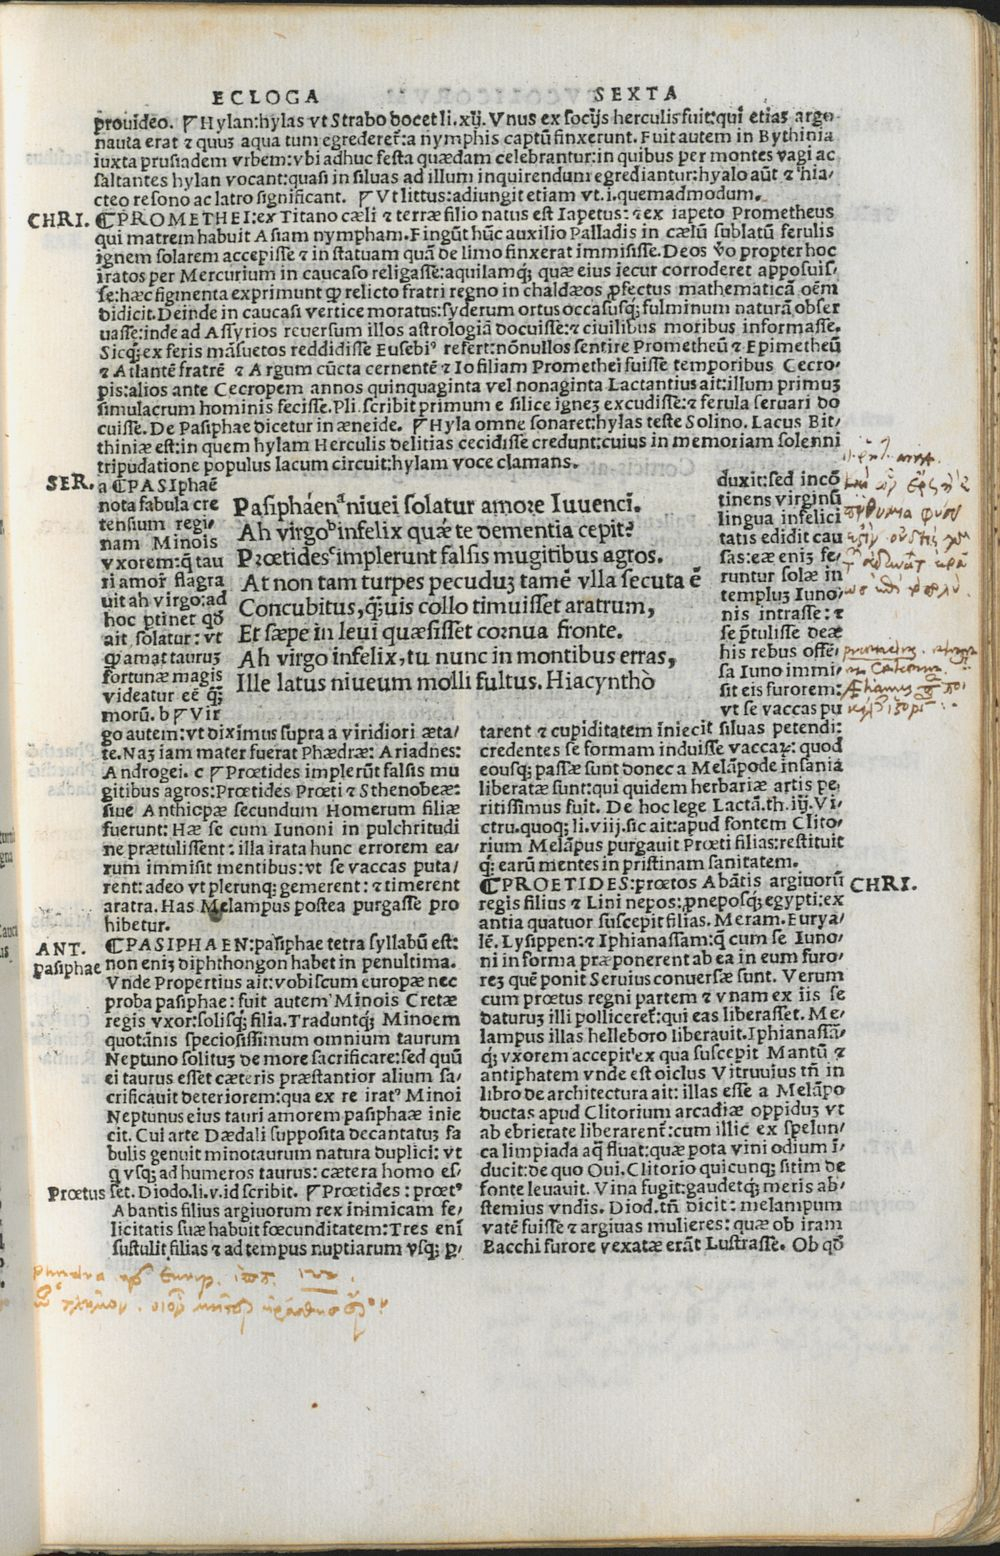 ECLOGA SEXTA
prouideo. Hylan:hylas vt Strabo docet li.xij. Vnus ex socijs herculis fuit:qui etiaʒ argo
nauta erat ⁊ quuʒ aqua tum egrederet̃:a nymphis captũ finxerunt. Fuit autem in Bythinia
iuxta prusiadem vrbem:vbi adhuc festa quædam celebrantur:in quibus per montes vagi ac
saltantes hylan vocant:quasi in siluas ad illum inquirendum egrediantur:hyalo aũt ⁊ hia/
cteo resono ac latro significant. Vt littus:adiungit etiam vt.i.quemadmodum.
CHRI. ¶PROMETHEI:ex Titano cæli ⁊ terræ filio natus est Iapetus:⁊ ex iapeto Prometheus
qui matrem habuit Asiam nympham. Fingũt hũc auxilio Palladis in cælũ sublatũ ferulis
ignem solarem accepisse ⁊ in statuam quã de limo finxerat immisisse. Deos ṽo propter hoc
iratos per Mercurium in caucaso religasse:aquilamq; quæ eius iecur corroderet apposuis/
se:hæc figmenta exprimunt ꝙ relicto fratri regno in chaldæos ꝓfectus mathematicã oẽm
didicit. Deinde in caucasi vertice moratus:syderum ortus occasusq; fulminum naturã obser
uasse:inde ad Assyrios reuersum illos astrologiã docuisse:⁊ ciuilibus moribus informasse.
Sicq; ex feris mãsuetos reddidisse Eusebiꝰ refert:nõnullos sentire Prometheũ ⁊ Epimetheũ
⁊ Atlantẽ fratrẽ ⁊ Argum cũcta cernentẽ ⁊ Io filiam Promethei fuisse temporibus Cecro/
pis:alios ante Cecropem annos quinquaginta vel nonaginta Lactantius ait:illum primuʒ
simulacrum hominis fecisse. Pli. scribit primum e silice igneʒ excudisse:⁊ ferula seruari do
cuisse. De Pasiphae dicetur in æneide. Hyla omne sonaret:hylas teste Solino. Lacus Bit/
thiniæ est:in quem hylam Herculis delitias cecidisse credunt:cuius in memoriam solenni
tripudatione populus lacum circuit:hylam voce clamans.
SER. a ¶PASIphaẽ
nota fabula cre
tensium regi/
nam Minois
vxorem:q̃ tau
ri amor̃ flagra
uit ah virgo:ad
hoc ꝑtinet qđ
ait solatur: vt
ꝙ amat tauruʒ
fortunæ magis
videatur eẽ q;
morũ. b Vir
Pasiphaen niuei solatur amore Iuuenci.
Ah virgo infelix quæ te dementia cepit?
Prœtides implerunt falsis mugitibus agros.
At non tam turpes pecuduʒ tamẽ vlla secuta ẽ
Concubitus, q;uis collo timuisset aratrum,
Et sæpe in leui quæsisset cornua fronte.
Ah virgo infelix, tu nunc in montibus erras,
Ille latus niueum molli fultus. Hiacyntho
duxit:sed incõ
tinens virginũ
lingua infelici
tatis edidit cau
sas:eæ eniʒ fe/
runtur solæ in
templuʒ Iuno/
nis intrasse: ⁊
se p̃tulisse deæ
his rebus offẽ/
sa Iuno immi/
sit eis furorem:
vt se vaccas pu
go autem:vt diximus supra a viridiori æta/
te. Naʒ iam mater fuerat Phædræ: Ariadnes:
Androgei. c Prœtides implerũt falsis mu
gitibus agros:Prœtides Prœti ⁊ Sthenobeæ:
siue Anthiopæ secundum Homerum filiæ
fuerunt: Hæ se cum Iunoni in pulchritudi
ne prætulissent: illa irata hunc errorem ea/
rum immisit mentibus: vt se vaccas puta/
rent: adeo vt plerunq; gemerent: ⁊ timerent
aratra. Has Melampus postea purgasse pro
hibetur.
ANT. ¶PASIPHAEN:pasiphae tetra syllabũ est:
pasiphae non eniʒ diphthongon habet in penultima.
Vnde Propertius ait: vobiscum europæ nec
proba pasiphae: fuit autem Minois Cretæ
regis vxor: solisq; filia. Traduntq; Minoem
quotãnis speciosissimum omnium taurum
Neptuno solituʒ de more sacrificare: sed quũ
ei taurus esset cæteris præstantior alium sa/
crificauit deteriorem:qua ex re iratꝰ Minoi
Neptunus eius tauri amorem pasiphaæ inie
cit. Cui arte Dædali supposita decantatuʒ fa
bulis genuit minotaurum natura duplici: vt
q vsq; ad humeros taurus: cætera homo es/
Prœtus set. Diodo.li.v.id scribit. Prœtides: prœtꝰ
Abantis filius argiuorum rex inimicam fe/
licitatis suæ habuit fœcunditatem: Tres enĩ
sustulit filias ⁊ ad tempus nuptiarum vsq; ꝑ/
tarent ⁊ cupiditatem iniecit siluas petendi:
credentes se formam induisse vaccaꝝ: quod
eousq; passæ sunt donec a Melãpode insania
liberatæ sunt: qui quidem herbariæ artis pe/
ritissimus fuit. De hoc lege Lactã.th.iij. Vi/
ctru.quoq; li.viij.sic ait:apud fontem Clito/
rium Melãpus purgauit Prœti filias:restituit
q; earũ mentes in pristinam sanitatem.
¶PROETIDES:prœtos Abãtis argiuorũ CHRI.
regis filius ⁊ Lini nepos:ꝓneposq; egypti:ex
antia quatuor suscepit filias. Meram. Eurya/
lẽ. Lysippen: ⁊ Iphianassam: q̃ cum se Iuno/
ni in forma præponerent ab ea in eum furo/
reʒ quẽ ponit Seruius conuersæ sunt. Verum
cum prœtus regni partem ⁊ vnam ex iis se
daturuʒ illi polliceret̃: qui eas liberasset. Me/
lampus illas helleboro liberauit. Iphianassã/
q; vxorem accepit ex qua suscepit Mantũ ⁊
antiphatem vnde est oiclus Vitruuius tñ in
libro de architectura ait: illas esse a Melãpo
ductas apud Clitorium arcadiæ oppiduʒ vt
ab ebrietate liberarent̃:cum illic ex spelun/
ca limpiada aq̃ fluat: quæ pota vini odium ĩ/
ducit:de quo Oui. Clitorio quicunq; sitim de
fonte leuauit. Vina fugit:gaudetq; meris ab/
stemius vndis. Diod.tñ dicit: melampum
vatẽ fuisse ⁊ argiuas mulieres: quæ ob iram
Bacchi furore vexatæ erãt Lustrasse. Ob qđ